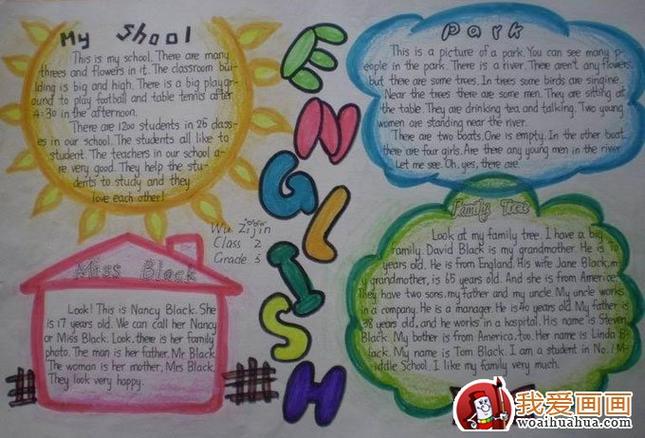 My Shool
This is my school. There are many
threes and flowers in it. The classroom bui-
lding is big and high. There is a big playgr-
ound to play football and table tennis after
4:30 in the afternoon.
There are 1200 students in 26 class-
es in our school. The students all like to
student. The teachers in our school a-
re very good. They help the stu-
dents to study and they
love each other!
ENGLISH
Park
This is a picture of a park. You can see many p-
eople in the park. There is a river. There aren't any flowers,
but there are some trees. In trees some birds are singine.
Near the trees there are some men. They are sitting at
the table. They are drinking tea and talking. Two young
women are standing near the river.
There are two boats. One is empty. In the other boat
there are four girls. Are there any young men in the river
Let me see. Oh, yes, there are.
Wu Zijin
Class 2
Grade 3
Miss Black
Look! This is Nancy Black. She
is 17 years old. We can call her Nancy
or Miss Black. Look, there is her family
photo. The man is her father, Mr Black.
The woman is her mother, Mrs Black.
They look very happy.
Family Tree
Look at my family tree. I have a big
family. David Black is my grandmother. He is
years old. He is from England. His wife Jane Black, m-
y grandmother, is 65 years old. And she is from America.
They have two sons, my father and my uncle. My uncle works
in a company. He is a manager. He is 40 years old. My father is
38 years old, and he works in a hospital. His name is Steven
Black. My bother is from America, too. Her name is Linda B-
lack. My name is Tom Black. I am a student in No.1 Mi-
ddle School. I like my family very much.
我爱画画
woaihuahua.com